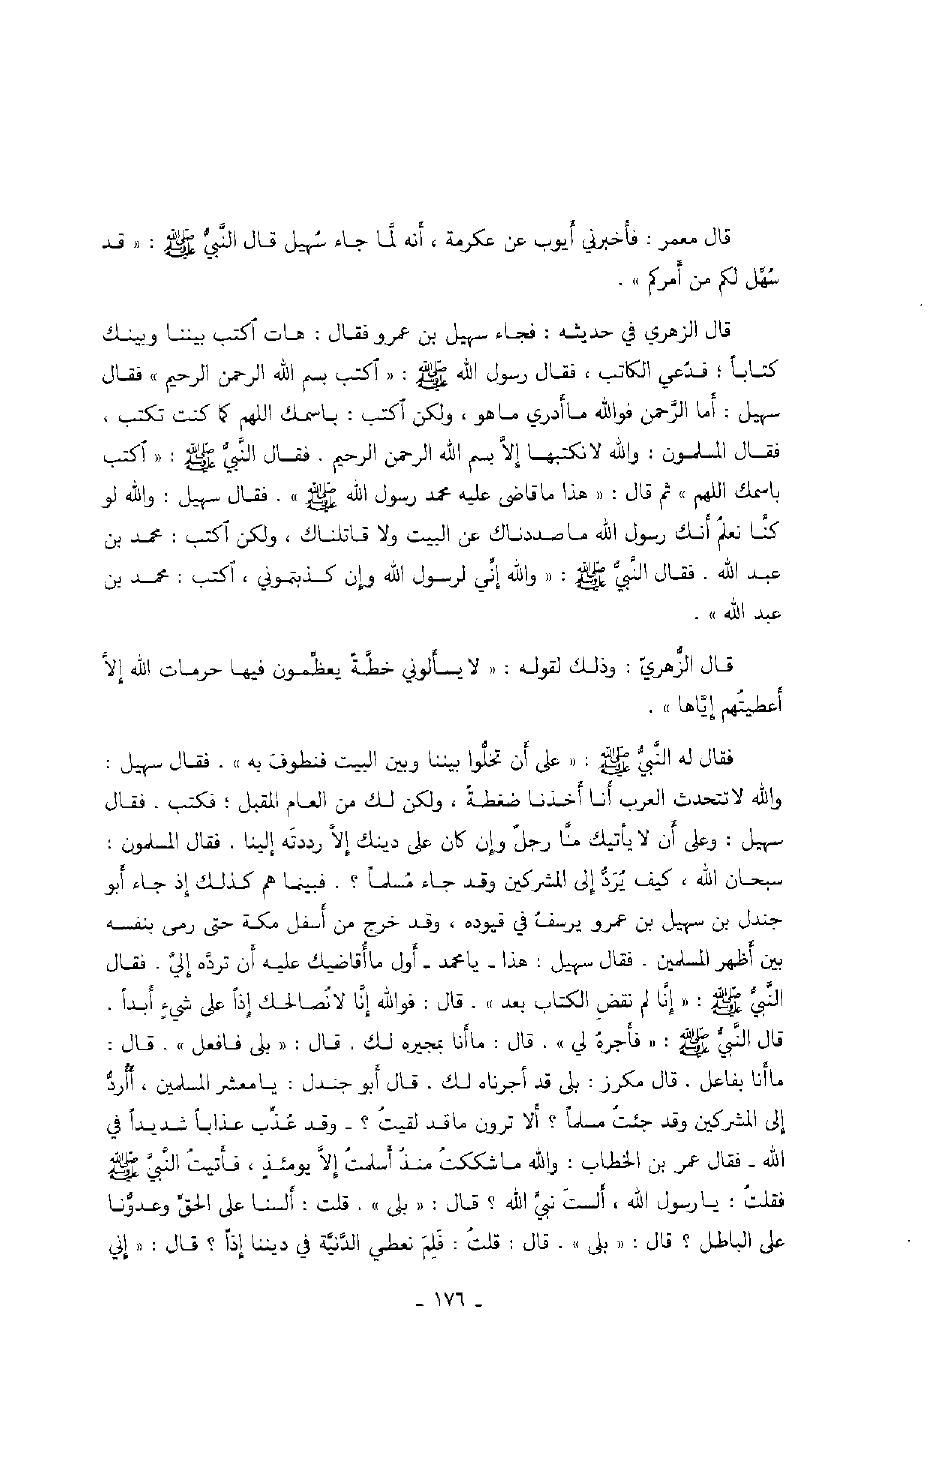 قال معمر : فأخبرني أيوب عن عكرمة ، أنه لمّا جاء سُهيل قال النَّبيُّ ﷺ : « قد
سُهِّل لكم من أمركم » .
قال الزهري في حديثه : فجاء سهيل بن عمرو فقال : هات آكتب بيننا وبينك
كتاباً ؛ فدُعي الكاتب ، فقال رسول الله ﷺ : « آكتب بسم الله الرحمن الرحيم » فقال
سهيل : أما الرَّحمن فوالله ماأدري ماهو ، ولكن آكتب : باسمك اللهم كما كنت تكتب ،
فقال المسلمون : والله لانكتبها إلاَّ بسم الله الرحمن الرحيم . فقال النَّبيُّ ﷺ : « آكتب
باسمك اللهم » ثم قال : « هذا ماقاضى عليه محمد رسول الله ﷺ » . فقال سهيل : والله لو
كنَّا نعلمُ أنك رسول الله ماصددناك عن البيت ولا قاتلناك ، ولكن آكتب : محمد بن
عبد الله . فقال النَّبيُّ ﷺ : « والله إنِّي لرسول الله وإن كذبتموني ، آكتب : محمد بن
عبد الله » .
قال الزُّهريّ : وذلك لقوله : « لا يسألوني خطَّةً يعظِّمون فيها حرمات الله إلاَّ
أعطيتُهم إيَّاها » .
فقال له النَّبيُّ ﷺ : « على أن تخلُّوا بيننا وبين البيت فنطوفَ به » . فقال سهيل :
والله لاتتحدث العرب أنا أُخذنا ضغطةً ، ولكن لك من العام المقبل ؛ فكتب . فقال
سهيل : وعلى أن لا يأتيك منَّا رجلٌ وإن كان على دينك إلاَّ رددتَه إلينا . فقال المسلمون :
سبحان الله ، كيف يُرَدُّ إلى المشركين وقد جاء مُسلماً ؟ . فبينما هم كذلك إذ جاء أبو
جندل بن سهيل بن عمرو يرسفُ في قيوده ، وقد خرج من أسفل مكة حتى رمى بنفسه
بين أظهر المسلمين . فقال سهيل : هذا ـ يامحمد ـ أول ماأقاضيك عليه أن تردَّه إليَّ . فقال
النَّبيُّ ﷺ : « إنَّا لم نقضِ الكتاب بعد » . قال : فوالله إنَّا لانُصالحك إذاً على شيءٍ أبداً .
قال النَّبيُّ ﷺ : « فأجرهُ لي » . قال : ماأنا بمجيره لك . قال : « بلى فافعل » . قال :
ماأنا بفاعل . قال مكرز : بلى قد أجرناه لك . قال أبو جندل : يامعشر المسلمين ، أأُردُّ
إلى المشركين وقد جئتُ مسلماً ؟ ألا ترون ماقد لقيتُ ؟ ـ وقد عُذِّب عذاباً شديداً في
الله ـ فقال عمر بن الخطاب : والله ماشككتُ منذُ أسلمتُ إلاَّ يومئذٍ ، فأتيتُ النَّبيَّ ﷺ
فقلتُ : يارسول الله ، ألستَ نبيَّ الله ؟ قال : « بلى » . قلت : ألسنا على الحقِّ وعدوُّنا
على الباطل ؟ قال : « بلى » . قال : قلتُ : فَلِمَ نعطي الدَّنيَّة في ديننا إذاً ؟ قال : « إني
ـ ١٧٦ ـ